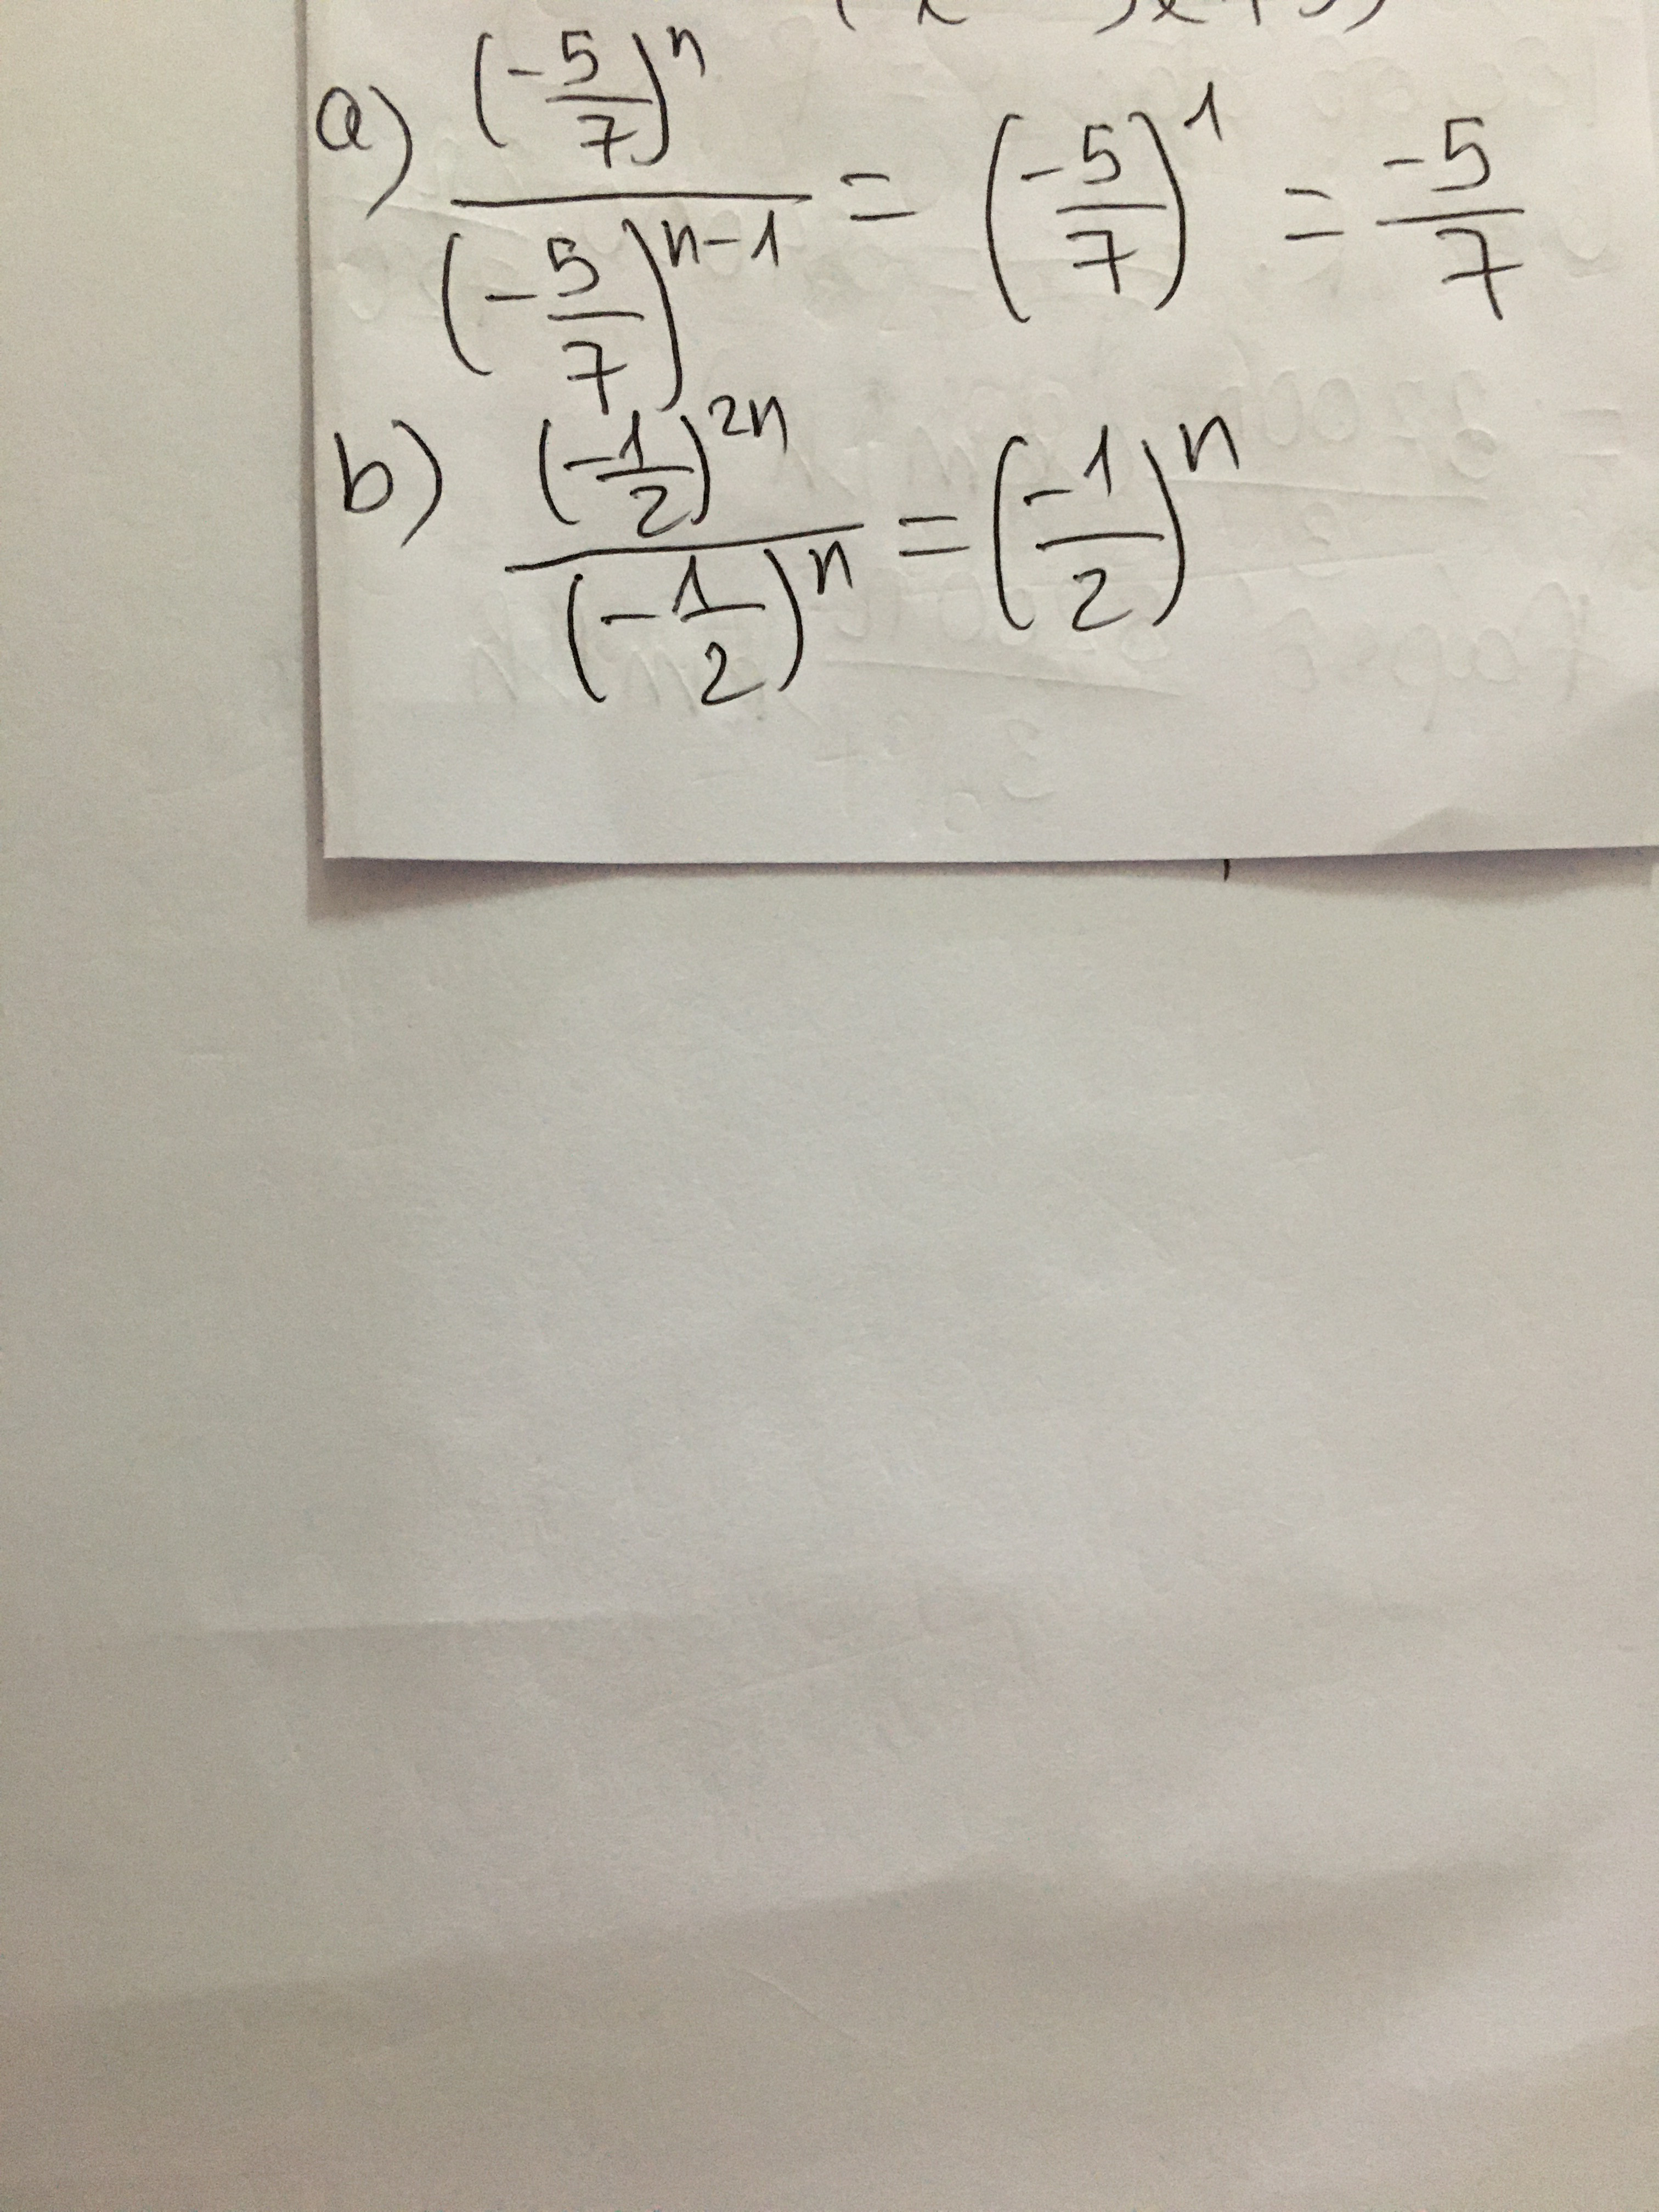 a) (-5/7)^n / (-5/7)^(n-1) = (-5/7)^1 = -5/7
b) (-1/2)^(2n) / (-1/2)^n = (-1/2)^n